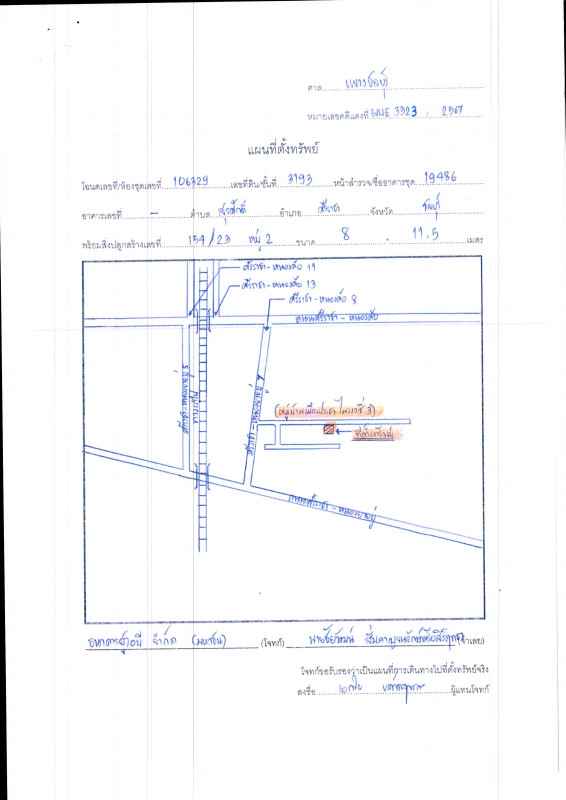 ศาล แพ่งชลบุรี
หมายเลขคดีแดงที่ ผบE 3323 / 2567
แผนที่ตั้งทรัพย์
โฉนดเลขที่/ห้องชุดเลขที่ 106329 เลขที่ดิน/ชั้นที่ 3193 หน้าสำรวจ/ชื่ออาคารชุด 19486
อาคารเลขที่ - ตำบล สุรศักดิ์ อำเภอ ศรีราชา จังหวัด ชลบุรี
พร้อมสิ่งปลูกสร้างเลขที่ 154/23 หมู่ 2 ขนาด 8 . 11.5 เมตร
ศรีราชา-หนองค้อ 11
ศรีราชา-หนองค้อ 13
ศรีราชา-หนองค้อ 8
ถนนศรีราชา-หนองค้อ
ศรีราชา-หนองยายบู่ 5
ศรีราชา-หนองยายบู่ 7
3)
ที่ตั้งทรัพย์
ถนนศรีราชา-หนองยายบู่
ธนาคารยูโอบี จำกัด (มหาชน) (โจทก์) (จำเลย)
โจทก์ขอรับรองว่าเป็นแผนที่การเดินทางไปที่ตั้งทรัพย์จริง
ลงชื่อ ผู้แทนโจทก์